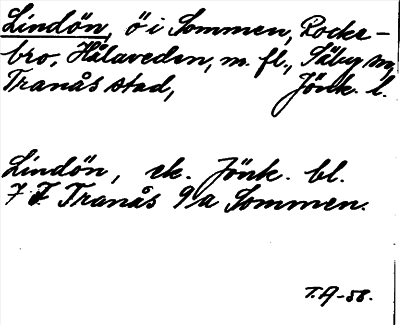 Lindön, ö i Sommen, Rocke-
bro, Hålaveden, m. fl., Säby sn,
Tranås stad, Jönk. l.
Lindön, ek. Jönk. bl.
7 F Tranås 9a Sommen.
T.A-58.